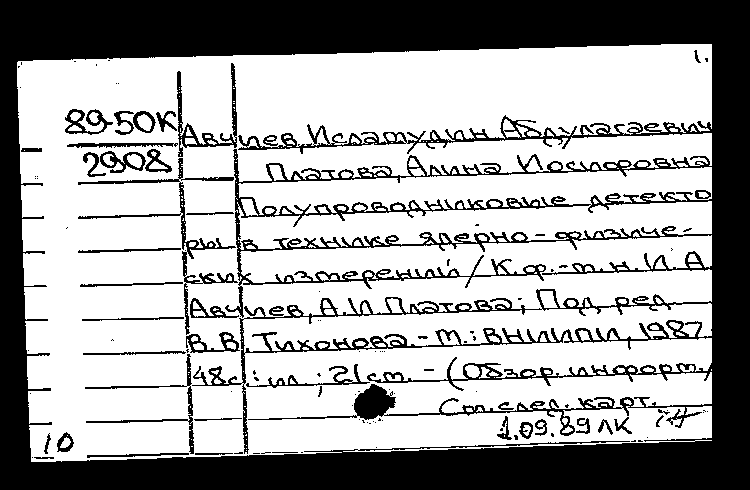 1.
89-50К Авчиев, Исламудин Абдулагаевич
2908 Платова, Алина Иосифовна
Полупроводниковые детекто
ры в технике ядерно-физиче-
ских измерений / К.ф.-м.н. И. А.
Авчиев, А. И. Платова; Под ред.
В. В. Тихонова. - М.: ВНИИПИ, 1987.
48с.: ил.; 21см. - (Обзор. информ. /
См. след. карт.
1.09.89 ЛК
10